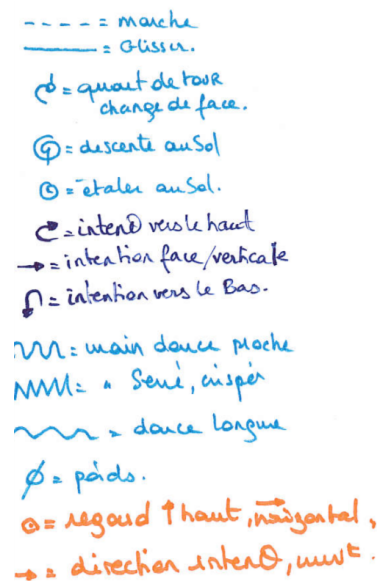 = marche
= Glisser.
= quart de tour
change de face.
= descente au Sol
= étaler au Sol.
= intenθ vers le haut
→ = intention face/verticale
= intention vers le Bas.
= main douce proche
= " Serré, crispér
= douce longue
ϕ = poids.
= regard ↑ haut, horizontal,
→ = direction intenθ, mvt.